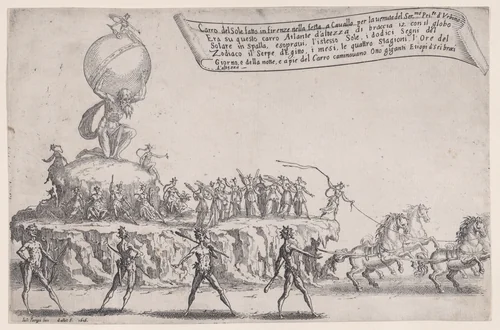 Carro del Sole fatto in firenze nella festa a Cavallo per la venuta del Ser.mo Pri.pe d'Urbino
Era su questo carro Atlante d'altezza di braccia 12 con il globo
Solare in Spalla, e sopra vi l'istesso Sole, i dodici Segni del
Zodiaco il Serpe d'Egitto, i mesi, le quattro stagioni l'Ore del
Giorno, e della notte, e a pie del Carro caminavano Otto giganti Etiopi d'sei bracci
d'altezza
Iul. Parigii Inv. Callot F. 1616